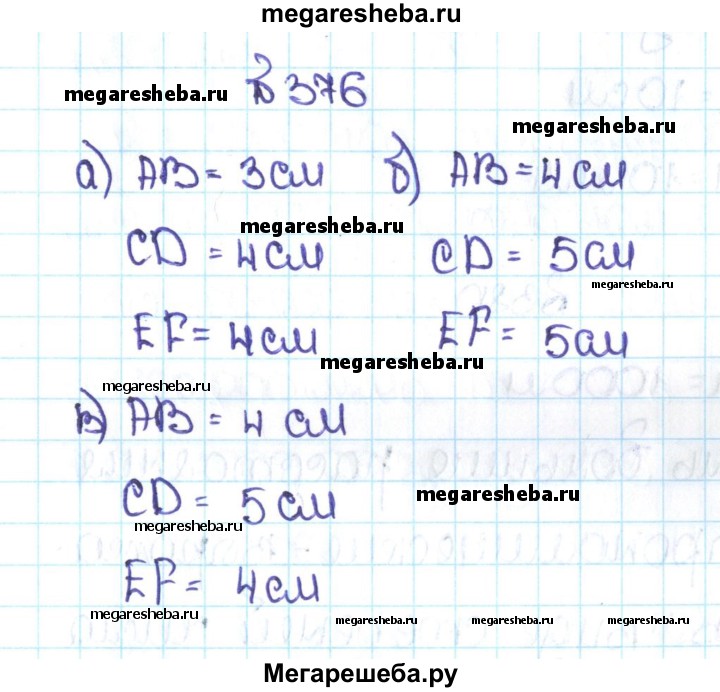 megaresheba.ru
№376
megaresheba.ru
megaresheba.ru
а) AB = 3 см б) AB = 4 см
megaresheba.ru
CD = 4 см CD = 5 см
megaresheba.ru
EF = 4 см EF = 5 см
megaresheba.ru
megaresheba.ru
в) AB = 4 см
CD = 5 см
megaresheba.ru
megaresheba.ru
EF = 4 см
megaresheba.ru
megaresheba.ru
megaresheba.ru
megaresheba.ru
Мегарешеба.ру